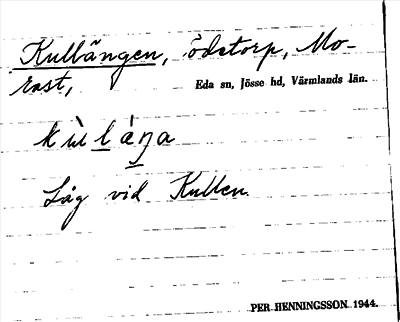 Kullängen, ödetorp, Mo-
rast,
Eda sn, Jösse hd, Värmlands län.
Låg vid Kullen.
PER HENNINGSSON 1944.